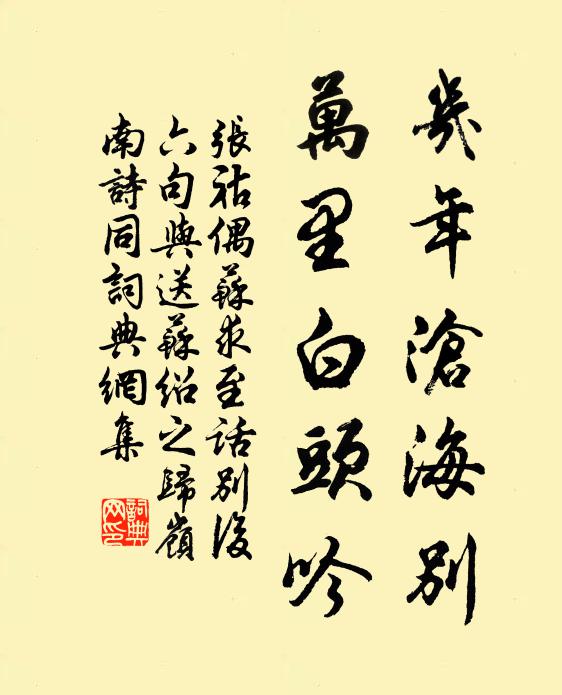 幾年滄海別
萬里白頭吟
張祜偶蘇求至話別後
六句與送蘇紹之歸嶺
南詩同詞典網集
詞典
网印